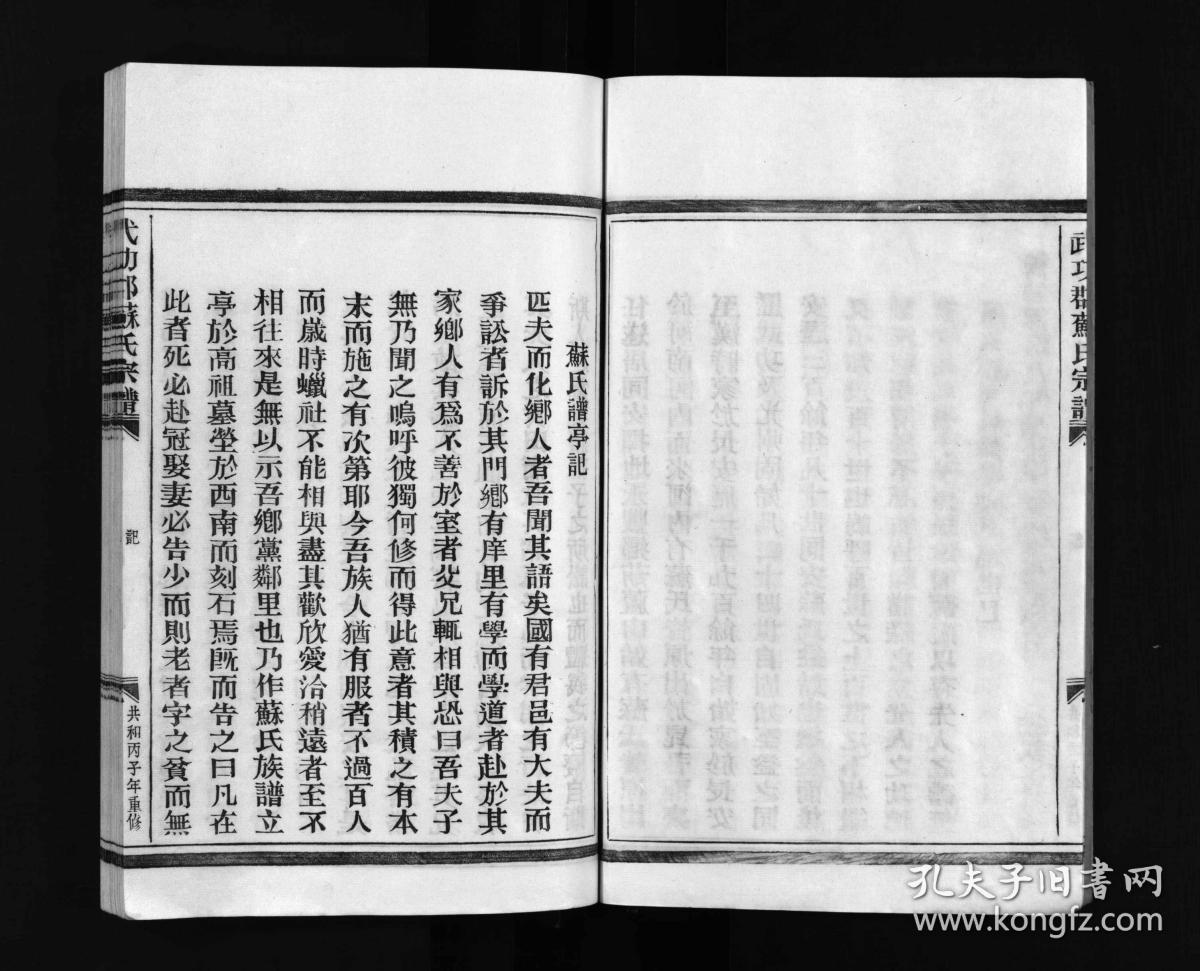 武功郡蘇氏宗譜
蘇氏譜亭記
匹夫而化鄉人者吾聞其語矣國有君邑有大夫而
爭訟者訴於其門鄉有庠里有學而學道者赴於其
家鄉人有爲不善於室者父兄輒相與恐曰吾夫子
無乃聞之嗚呼彼獨何修而得此意者其積之有本
末而施之有次第耶今吾族人猶有服者不過百人
而歲時蠟社不能相與盡其歡欣愛洽稍遠者至不
相往來是無以示吾鄉黨鄰里也乃作蘇氏族譜立
亭於高祖墓塋於西南而刻石焉既而告之曰凡在
此者死必赴冠娶妻必告少而則老者字之貧而無
武功郡蘇氏宗譜
記
共和丙子年重修
孔夫子旧書网
www.kongfz.com